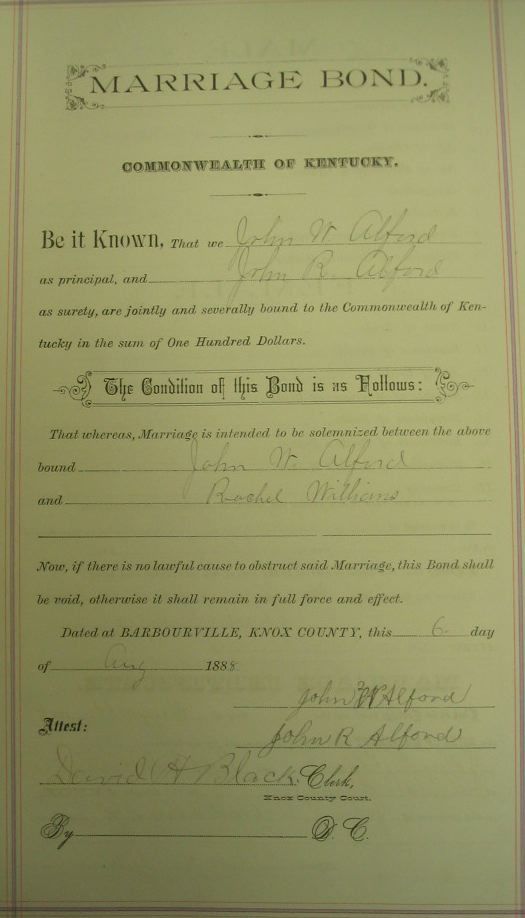 MARRIAGE BOND.
COMMONWEALTH OF KENTUCKY.
Be it Known, That we John W Alford
as principal, and John R. Alford
as surety, are jointly and severally bound to the Commonwealth of Ken-
tucky in the sum of One Hundred Dollars.
The Condition of this Bond is as Follows:
That whereas, Marriage is intended to be solemnized between the above
bound John W. Alford
and Rachel Williams
Now, if there is no lawful cause to obstruct said Marriage, this Bond shall
be void, otherwise it shall remain in full force and effect.
Dated at BARBOURVILLE, KNOX COUNTY, this 6 day
of Aug 1888
John W Alford
Attest: John R Alford
David H Black Clerk,
Knox County Court.
By D. C.